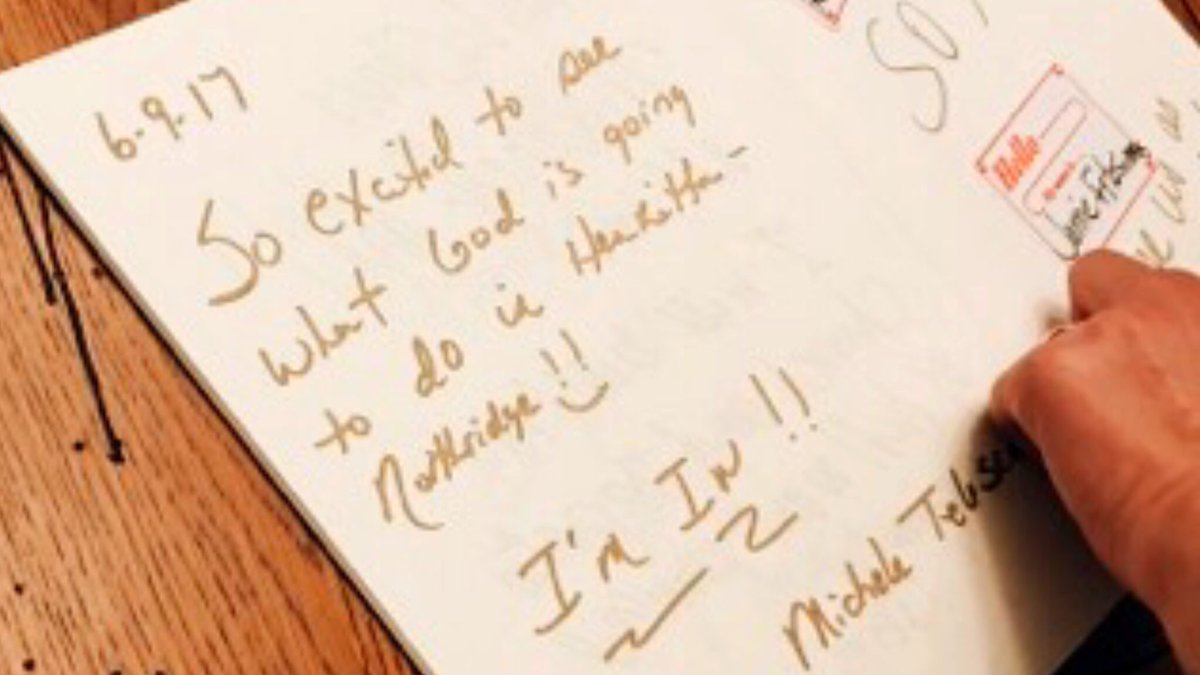 6-9-17
So excited to see
what God is going
to do in Henrietta -
Northridge!!
I'm In!!
Michele
SO
Hello